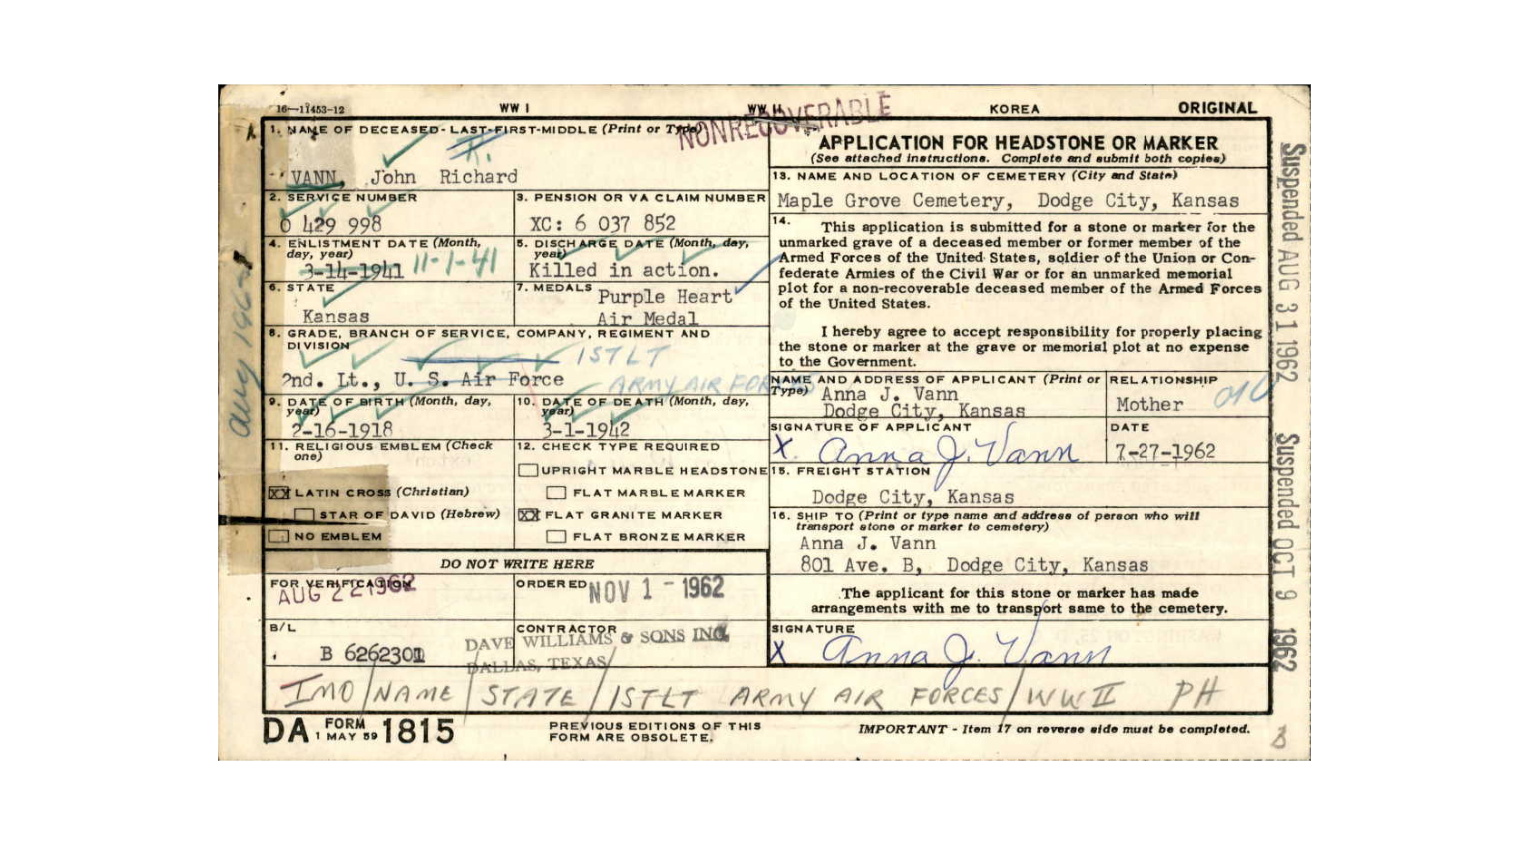 16—11453-12 WW I WW II KOREA ORIGINAL
NONRECOVERABLE
1. NAME OF DECEASED - LAST-FIRST-MIDDLE (Print or Type)
R.
VANN, John Richard
2. SERVICE NUMBER
O 429 998
3. PENSION OR VA CLAIM NUMBER
XC: 6 037 852
4. ENLISTMENT DATE (Month,
day, year)
3-14-1941 11-1-41
5. DISCHARGE DATE (Month, day,
year)
Killed in action.
6. STATE
Kansas
7. MEDALS Purple Heart
Air Medal
8. GRADE, BRANCH OF SERVICE, COMPANY, REGIMENT AND
DIVISION
1STLT
2nd. Lt., U. S. Air Force ARMY AIR FORCES
9. DATE OF BIRTH (Month, day,
year)
2-16-1918
10. DATE OF DEATH (Month, day,
year)
3-1-1942
11. RELIGIOUS EMBLEM (Check
one)
XX LATIN CROSS (Christian)
STAR OF DAVID (Hebrew)
NO EMBLEM
12. CHECK TYPE REQUIRED
UPRIGHT MARBLE HEADSTONE
FLAT MARBLE MARKER
XX FLAT GRANITE MARKER
FLAT BRONZE MARKER
DO NOT WRITE HERE
FOR VERIFICATION
AUG 22 1962
ORDERED NOV 1 - 1962
B/L
B 6262301
CONTRACTOR
DAVE WILLIAMS & SONS INC.
DALLAS, TEXAS
APPLICATION FOR HEADSTONE OR MARKER
(See attached instructions. Complete and submit both copies)
13. NAME AND LOCATION OF CEMETERY (City and State)
Maple Grove Cemetery, Dodge City, Kansas
14. This application is submitted for a stone or marker for the
unmarked grave of a deceased member or former member of the
Armed Forces of the United States, soldier of the Union or Con-
federate Armies of the Civil War or for an unmarked memorial
plot for a non-recoverable deceased member of the Armed Forces
of the United States.
I hereby agree to accept responsibility for properly placing
the stone or marker at the grave or memorial plot at no expense
to the Government.
NAME AND ADDRESS OF APPLICANT (Print or
Type) Anna J. Vann
Dodge City, Kansas
RELATIONSHIP
Mother
SIGNATURE OF APPLICANT
X. Anna J. Vann
DATE
7-27-1962
15. FREIGHT STATION
Dodge City, Kansas
16. SHIP TO (Print or type name and address of person who will
transport stone or marker to cemetery)
Anna J. Vann
801 Ave. B, Dodge City, Kansas
The applicant for this stone or marker has made
arrangements with me to transport same to the cemetery.
SIGNATURE
X Anna J. Vann
IMO/NAME/STATE/1STLT ARMY AIR FORCES/WWII PH
DA FORM 1 MAY 59 1815
PREVIOUS EDITIONS OF THIS
FORM ARE OBSOLETE.
IMPORTANT - Item 17 on reverse side must be completed.
Suspended AUG 31 1962
Suspended OCT 9 1962